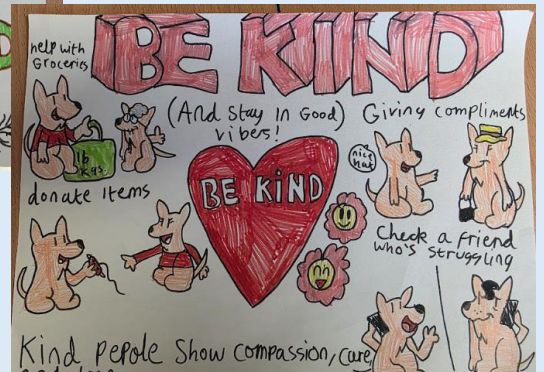 BE KIND
help with
Groceries
(And Stay In Good)
vibes!
Giving compliments
nice
hat
16
Kgs
donate Items
BE KIND
Check a friend
who's struggling
Kind pepole Show compassion, care